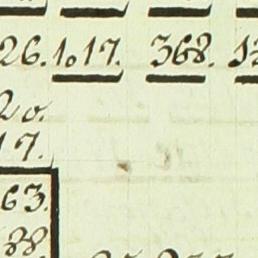 26. 1.17. 368.
20.
17.
63.
38.